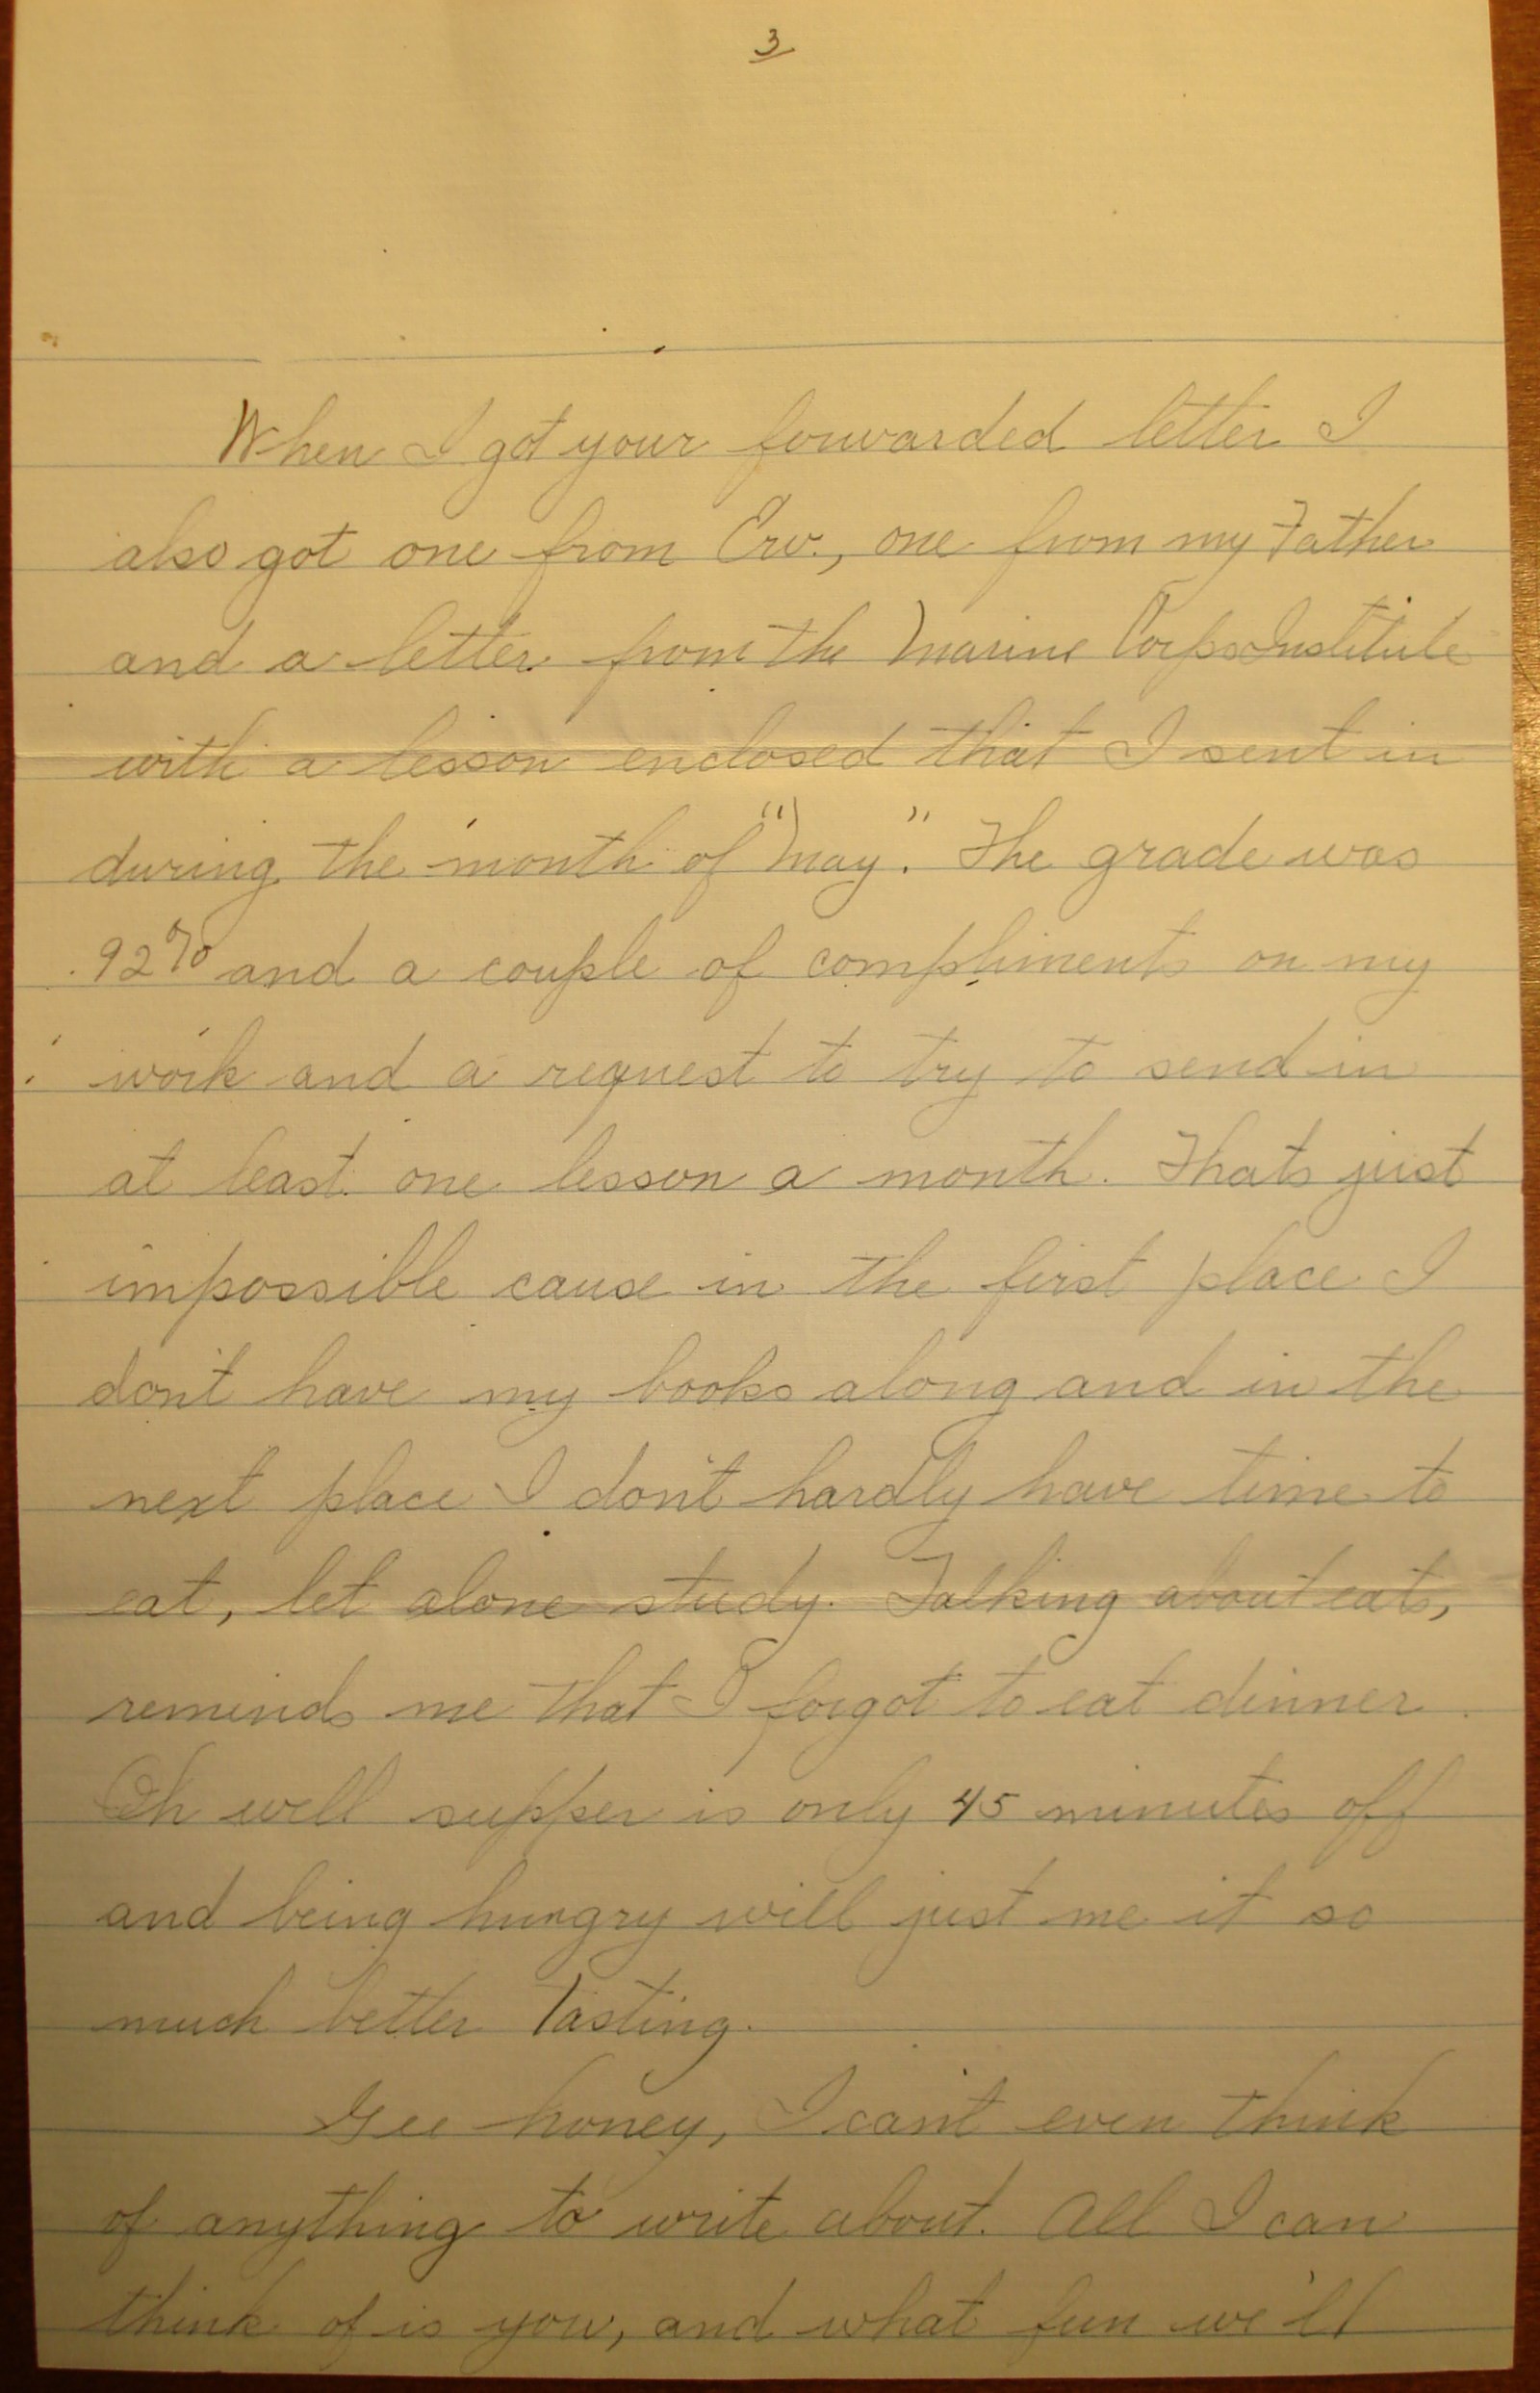 3
When I got your forwarded letter I
also got one from Erv., one from my Father
and a letter from the Marine Corps Institute
with a lesson enclosed that I sent in
during the month of "May". The grade was
92% and a couple of compliments on my
work and a request to try to send in
at least one lesson a month. Thats just
impossible cause in the first place I
don't have my books along and in the
next place I don't hardly have time to
eat, let alone study. Talking about eats,
reminds me that I forgot to eat dinner.
Oh well supper is only 45 minutes off
and being hungry will just me it so
much better tasting.
Gee honey, I can't even think
of anything to write about. All I can
think of is you, and what fun we'll